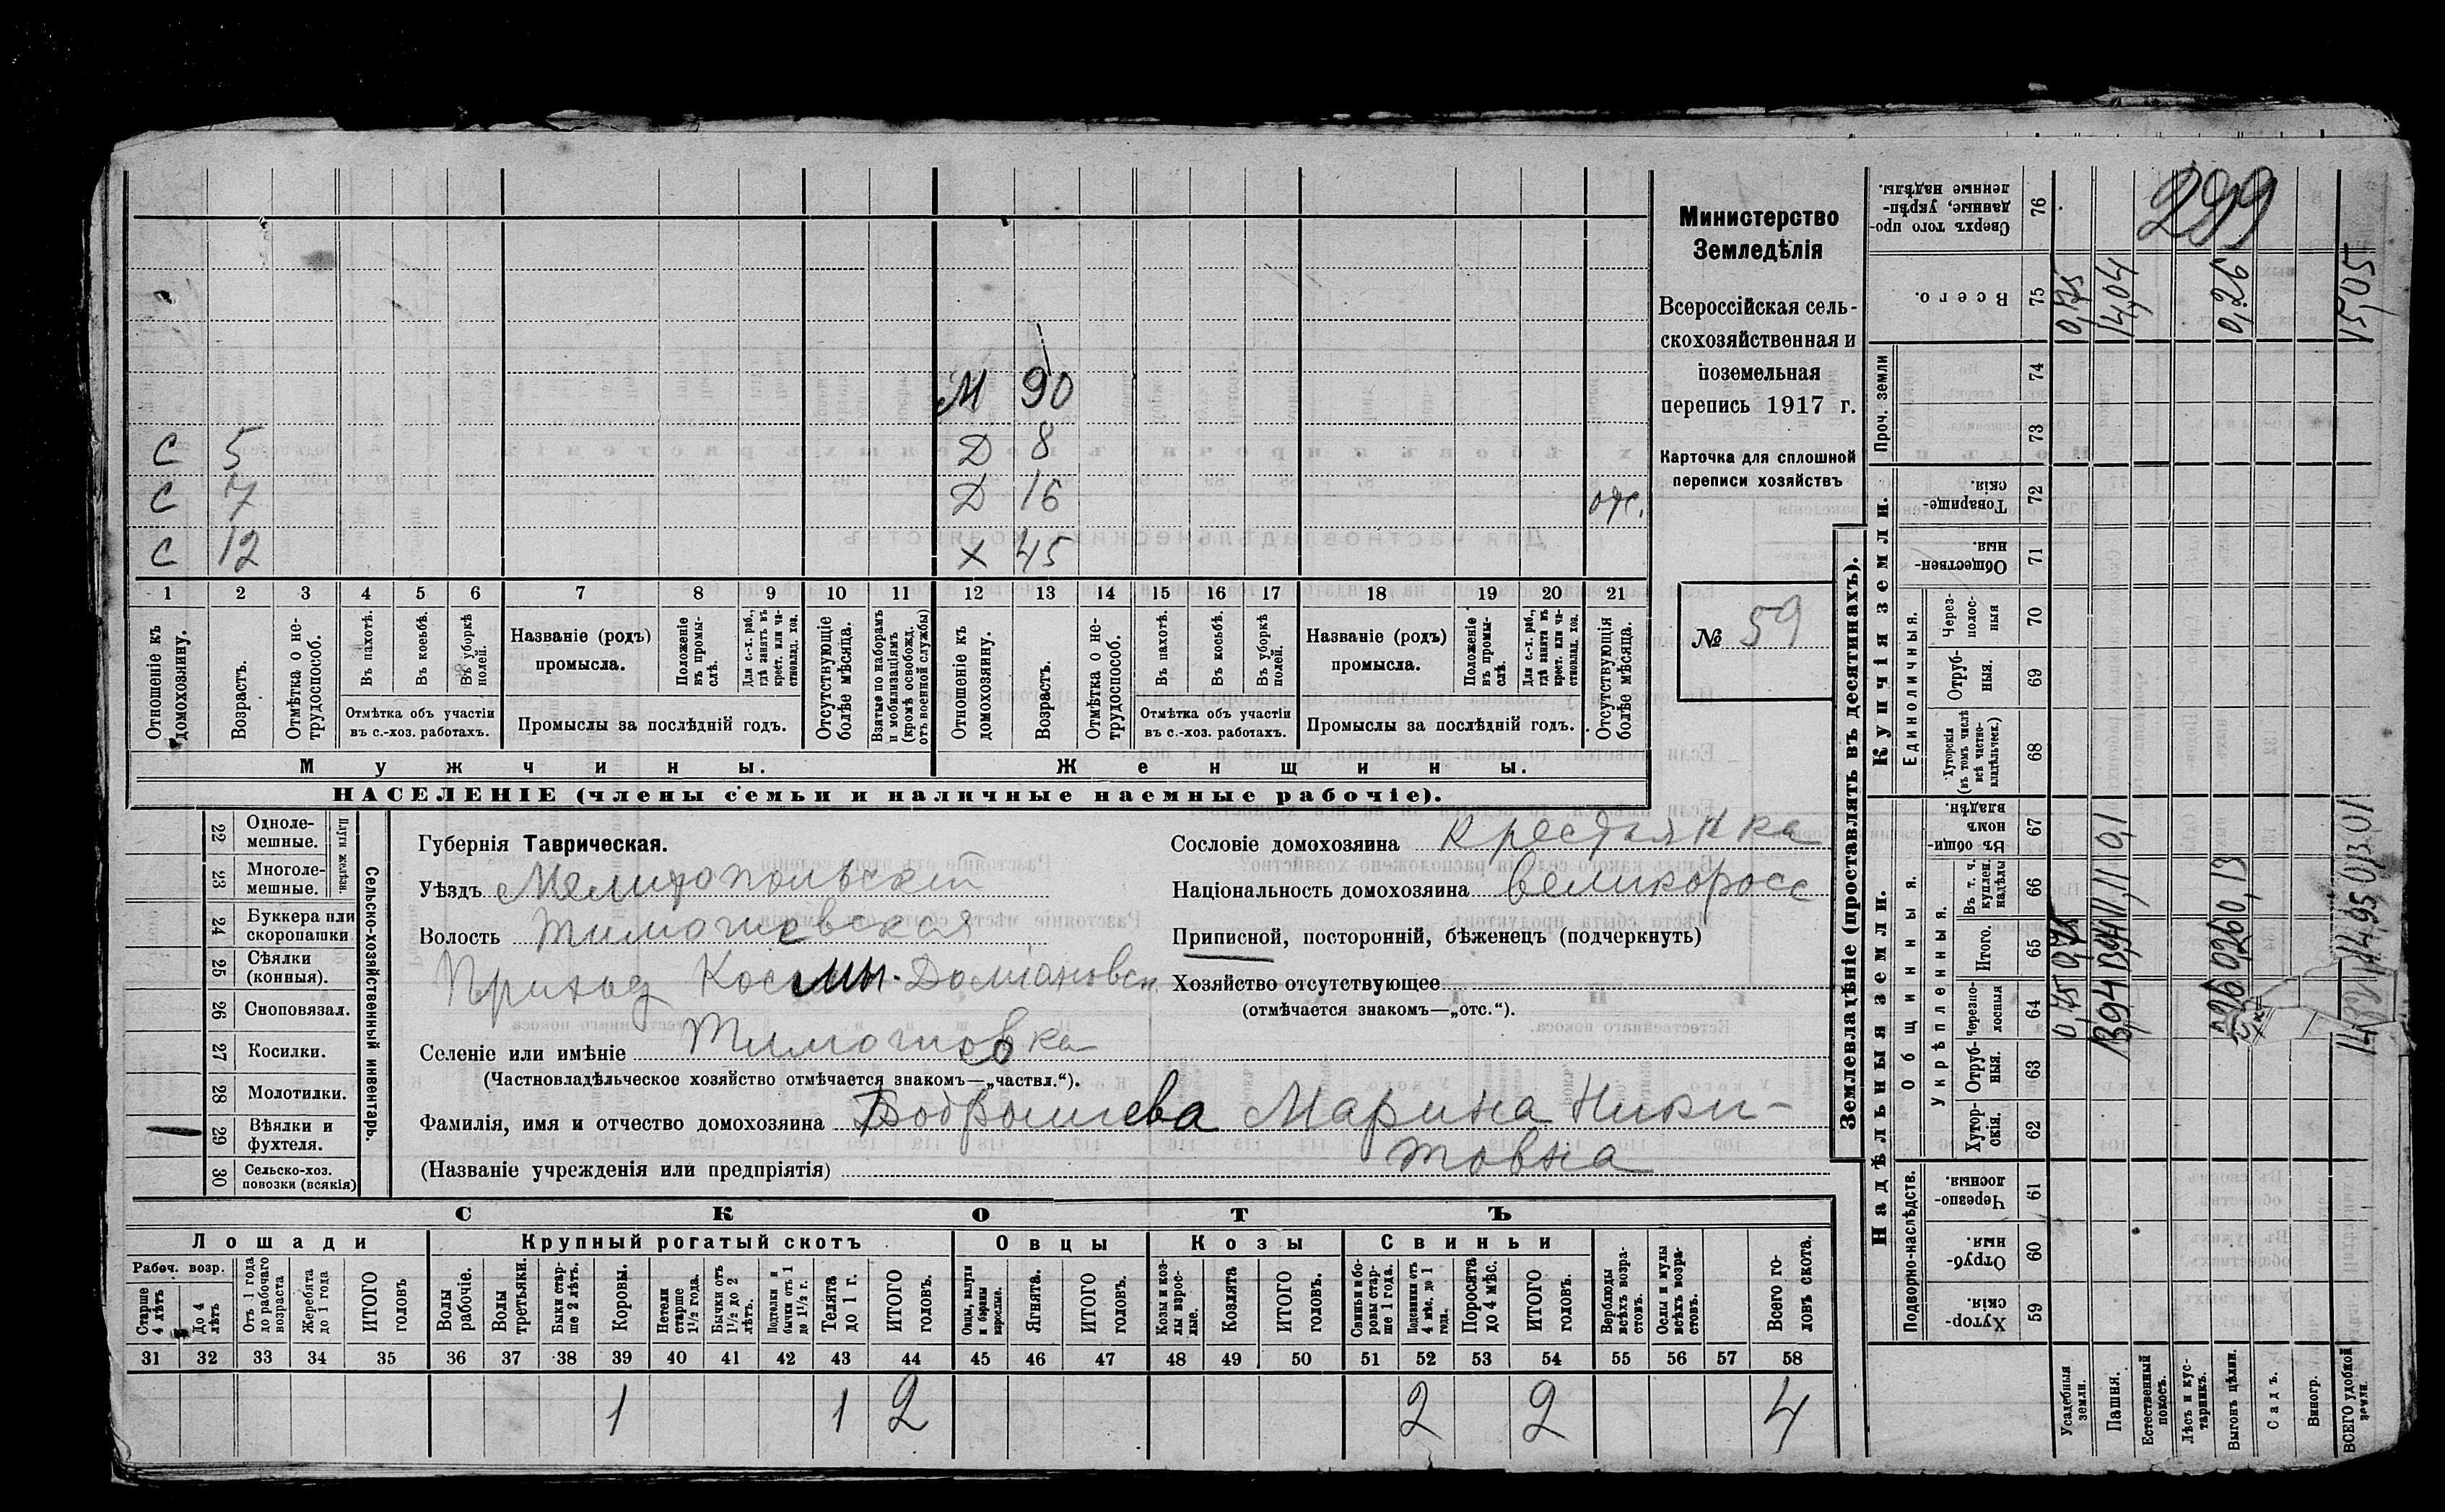 Министерство
Земледѣлія
Всероссійская сель-
скохозяйственная и
поземельная
перепись 1917 г.
Карточка для сплошной
переписи хозяйствъ
№ 59
299
М 90
С 5 Д 8
С 7 Д 16 отс.
С 12 Х 45
1 2 3 4 5 6 7 8 9 10 11 12 13 14 15 16 17 18 19 20 21
Отношеніе къ домохозяину.
Возрастъ.
Отмѣтка о не-трудоспособ.
Въ пахотѣ.
Въ косьбѣ.
Въ уборкѣ полей.
Отмѣтка объ участіи
въ с.-хоз. работахъ.
Названіе (родъ)
промысла.
Положеніе въ промы-слѣ.
Для с.-х. раб., гдѣ занятъ въ крест. или ча-стновлад. хоз.
Промыслы за послѣдній годъ.
Отсутствующіе болѣе мѣсяца.
Взятые по наборамъ и мобилизаціямъ (кромѣ освобожд. отъ военной службы)
Отношеніе къ домохозяину.
Возрастъ.
Отмѣтка о не-трудоспособ.
Въ пахотѣ.
Въ косьбѣ.
Въ уборкѣ полей.
Отмѣтка объ участіи
въ с.-хоз. работахъ.
Названіе (родъ)
промысла.
Положеніе въ промы-слѣ.
Для с.-х. раб., гдѣ занята въ крест. или ча-стновлад. хоз.
Промыслы за послѣдній годъ.
Отсутствующія болѣе мѣсяца.
Мужчины.
Женщины.
НАСЕЛЕНІЕ (члены семьи и наличные наемные рабочіе).
Сельско-хозяйственный инвентарь.
Плуги желѣзн.
22 Одноле-мешные.
23 Многоле-мешные.
24 Буккера или скоропашки
25 Сѣялки (конныя).
26 Сноповязал.
27 Косилки.
28 Молотилки.
29 Вѣялки и фухтеля.
30 Сельско-хоз. повозки (всякія)
Губернія Таврическая.
Уѣздъ Мелитопольскій
Волость Тимошевская
Приход Космы-Даміановск
Селеніе или имѣніе Тимошовка
(Частновладѣльческое хозяйство отмѣчается знакомъ—„частвл.“).
Сословіе домохозяина Крестьянка
Національность домохозяина Великоросс
Приписной, посторонній, бѣженецъ (подчеркнуть)
Хозяйство отсутствующее
(отмѣчается знакомъ—„отс.“).
Фамилія, имя и отчество домохозяина Бобрышева Марина Ники-
товна
(Названіе учрежденія или предпріятія)
СКОТЪ
Лошади
Крупный рогатый скотъ
Овцы
Козы
Свиньи
Рабоч. возр.
Старше 4 лѣтъ
До 4 лѣтъ
Отъ 1 года до рабочаго возраста
Жеребята до 1 года
ИТОГО головъ
Волы рабочіе.
Волы третьяки.
Быки стар-ше 2 лѣтъ.
Коровы.
Нетели старше 1½ года.
Бычки отъ 1½ до 2 лѣтъ.
Подтелки и бычки отъ 1 до 1½ г.
Телята до 1 г.
ИТОГО головъ.
Овцы, валухи и бараны взрослые.
Ягнята.
ИТОГО головъ.
Козы и коз-лы взрос-лые.
Козлята
ИТОГО головъ.
Свиньи и бо-ровы стар-ше 1 года.
Подсвинки отъ 4 мѣс. до 1 года.
Поросята до 4 мѣс.
ИТОГО головъ.
Верблюды всѣхъ возра-стовъ.
Ослы и мулы всѣхъ возра-стовъ.
Всего го-ловъ скота.
31 32 33 34 35 36 37 38 39 40 41 42 43 44 45 46 47 48 49 50 51 52 53 54 55 56 57 58
1 1 2 2 2 4
Землевладѣніе (проставлять въ десятинахъ).
Надѣльныя земли.
Купчія земли.
Проч. земли
Подворно-наслѣдств.
Общинныя.
Укрѣпленныя.
Единоличныя.
59 Хутор-скія.
60 Отруб-ныя.
61 Черезпо-лосныя.
62 Хутор-скія.
63 Отруб-ныя.
64 Черезпо-лосныя
65 Итого.
66 Въ т. ч. куплен. надѣлы
67 Въ общи-номъ владѣн.
68 Хуторскія (въ томъ числѣ всѣ частно-владѣльческ.)
69 Отруб-ныя.
70 Через-полос-ныя
71 Обществен-ныя.
72 Товарище-скія.
73
74
75 Всего.
76 Сверхъ того про-данные, укрѣп-ленные надѣлы.
Усадебныя земли. 0,75 0,75 0,75
Пашня. 13,94 0,1 14,04
Естественный покосъ.
Лѣсъ и кус-тарникъ.
Выгонъ цѣлин. 0,26 0,26 0,13 0,26
Садъ.
Виногр.
ВСЕГО удобной земли. 14,95 0,1 15,05